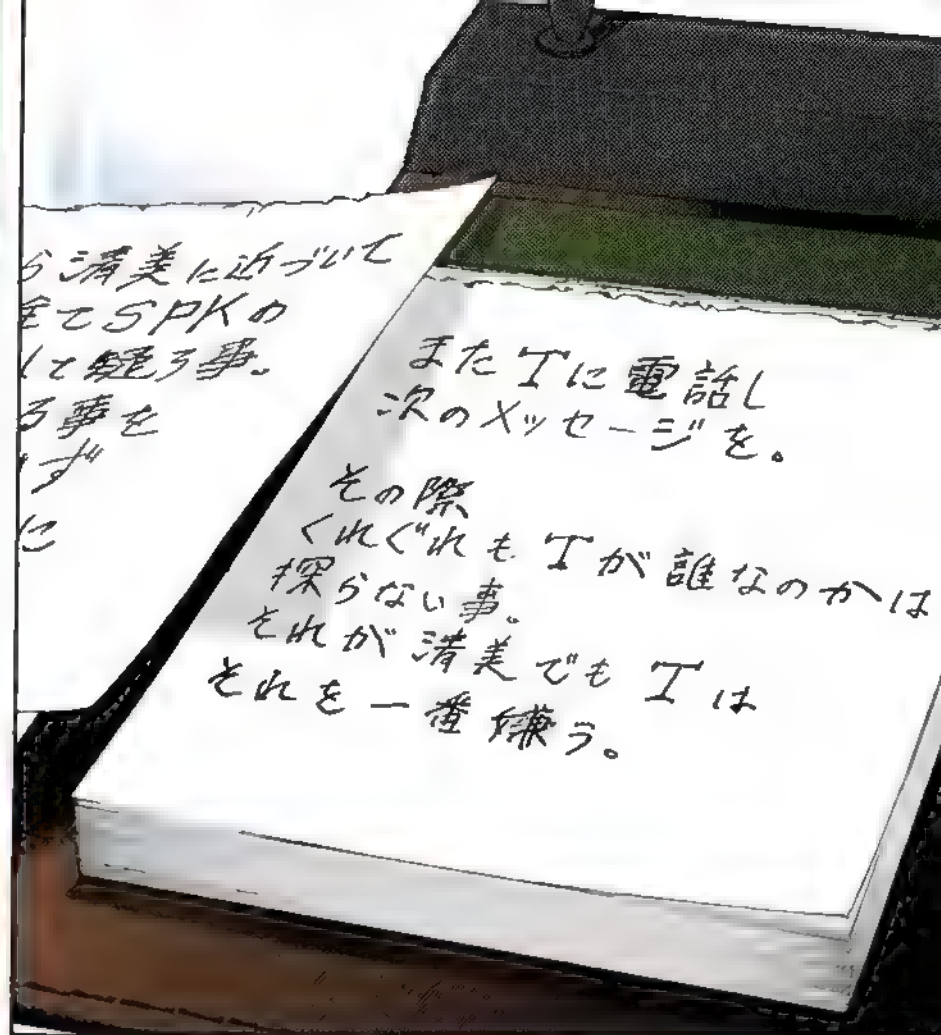 ら清美に近づいて
全てSPKの
して疑う事。
る事を
ず
に
また Tに 電話し
次のメッセージを。
その際
くれぐれも Tが 誰なのかは
探らない事。
それが 清美でも Tは
それを一番嫌う。